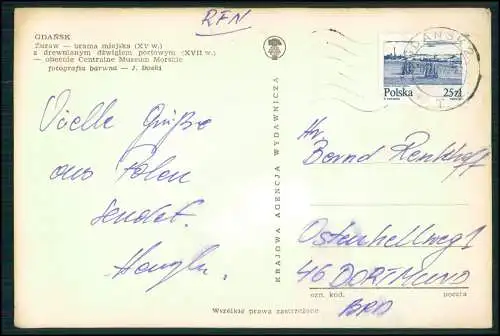 RFN
GDAŃSK
Żuraw — brama miejska (XV w.)
z drewnianym dźwigiem portowym (XVII w.)
— obecnie Centralne Muzeum Morskie
fotografia barwna — J.
Vielle Grüße
aus Polen
sendet.
KRAJOWA AGENCJA WYDAWNICZA
GDAŃSK 2
Polska 25 zł
Hr.
Bernd Renkhoff
Ostenhellweg 1
46 DORTMUND
ozn. kod. poczta
BRD
Wszelkie prawa zastrzeżone